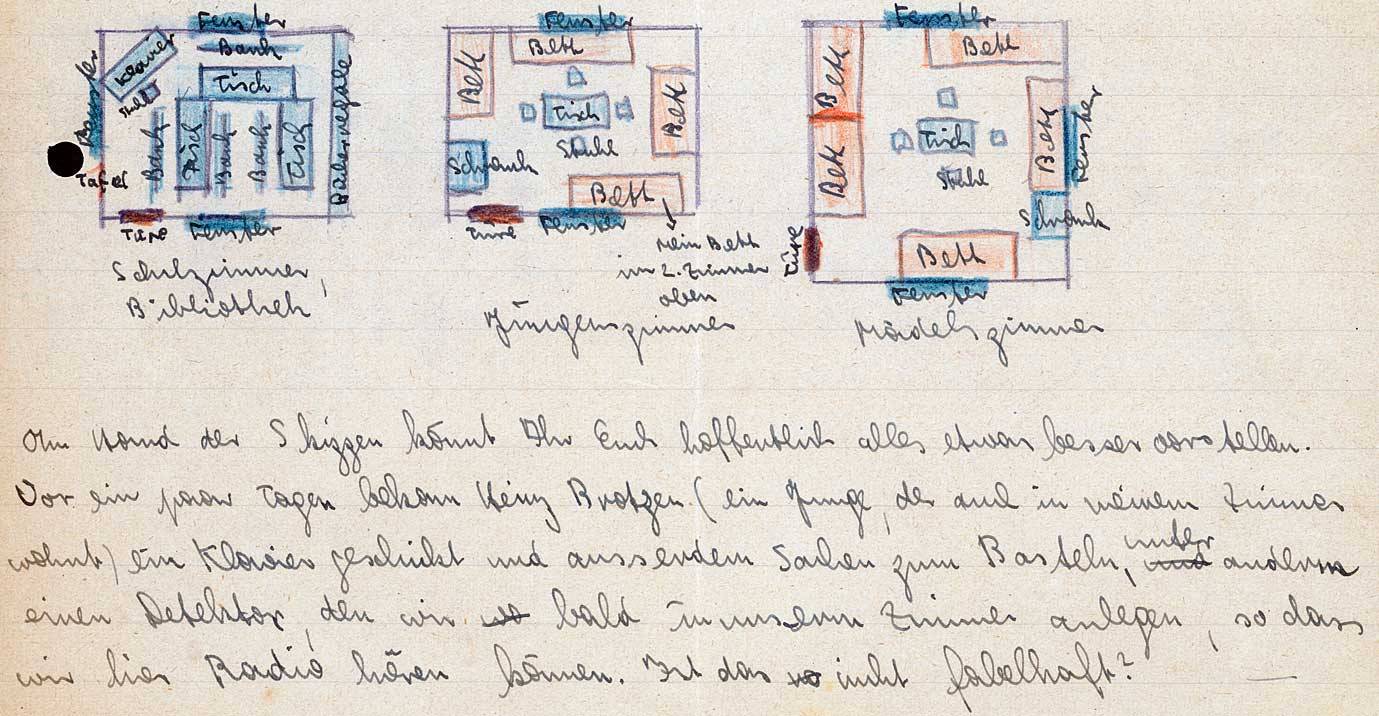 Fenster
Klavier
Bank
Tisch
Stuhl
Fenster
Bank
Tisch
Bank
Bank
Tisch
Bücherregale
Tafel
Türe
Fenster
Schulzimmer,
Bibliothek
Fenster
Bett
Bett
Bett
Tisch
Stühle
Schrank
Bett
Türe
Fenster
Mein Bett
im 2. Zimmer
oben
Jungenszimmer
Fenster
Bett
Bett
Bett
Tisch
Stühle
Bett
Fenster
Schrank
Türe
Bett
Fenster
Mädelszimmer
An Hand der Skizzen könnt Ihr Euch hoffentlich alles etwas besser vorstellen.
Vor ein paar Tagen bekam Heinz Brotzen (ein Junge, der auch in meinem Zimmer
wohnt) ein Klavier geschickt und ausserdem Sachen zum Basteln, unter anderm
einen Detektor, den wir bald in unserm Zimmer anlegen, so dass
wir hier Radio hören können. Ist das nicht fabelhaft? —